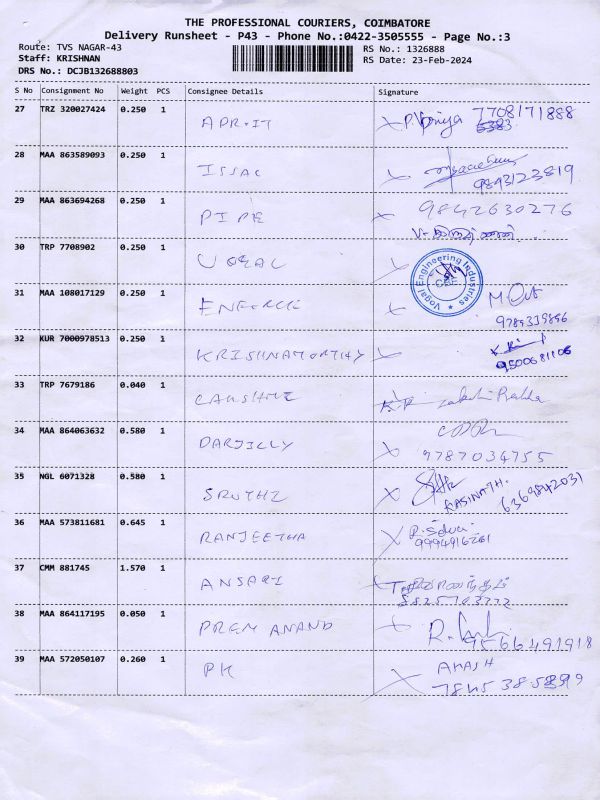 THE PROFESSIONAL COURIERS, COIMBATORE
Delivery Runsheet - P43 - Phone No.:0422-3505555 - Page No.:3
Route: TVS NAGAR-43 RS No.: 1326888
Staff: KRISHNAN RS Date: 23-Feb-2024
DRS No.: DCJB132688803
S No Consignment No Weight PCS Consignee Details Signature
27 TRZ 320027424 0.250 1 APRIT 7708171888
28 MAA 863589093 0.250 1 ISSAC
9893123819
29 MAA 863694268 0.250 1 PIPE 9842630276
30 TRP 7708902 0.250 1 VOGAL Vogal Engineering Industries CBE
31 MAA 108017129 0.250 1
32 KUR 7000978513 0.250 1 KRISHNAMORTHY
9500681106
33 TRP 7679186 0.040 1
34 MAA 864063632 0.580 1 DARJILLY
9787034755
35 NGL 6071328 0.580 1 SRUTHI
KASINATH. 6369842031
36 MAA 573811681 0.645 1 RANJEETHA R. Selva
37 CMM 881745 1.570 1 ANSARI
38 MAA 864117195 0.050 1 PREM ANAND
9566491918
39 MAA 572050107 0.260 1 PK AKASH